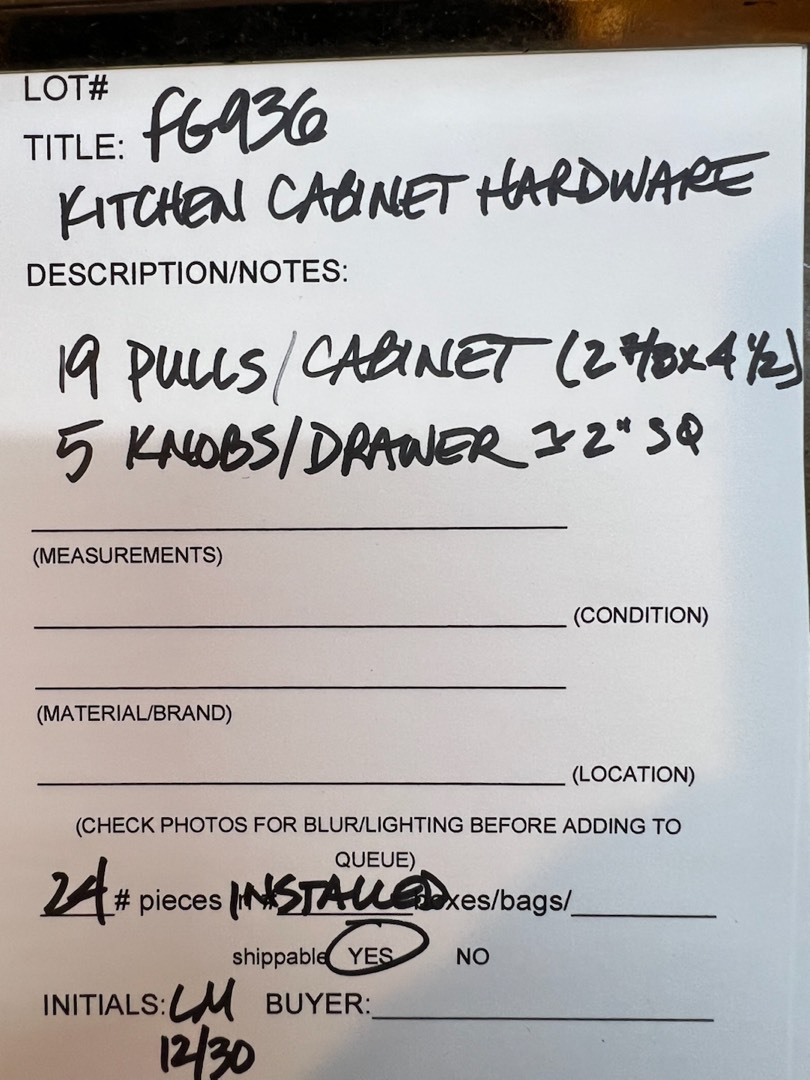 LOT#
TITLE: FG936
KITCHEN CABINET HARDWARE
DESCRIPTION/NOTES:
19 PULLS/CABINET (2 7/8 x 4 1/2)
5 KNOBS/DRAWER 2" SQ
(MEASUREMENTS)
(CONDITION)
(MATERIAL/BRAND)
(LOCATION)
(CHECK PHOTOS FOR BLUR/LIGHTING BEFORE ADDING TO
QUEUE)
24 # pieces INSTALLED boxes/bags/
shippable YES NO
INITIALS: LM BUYER:
12/30